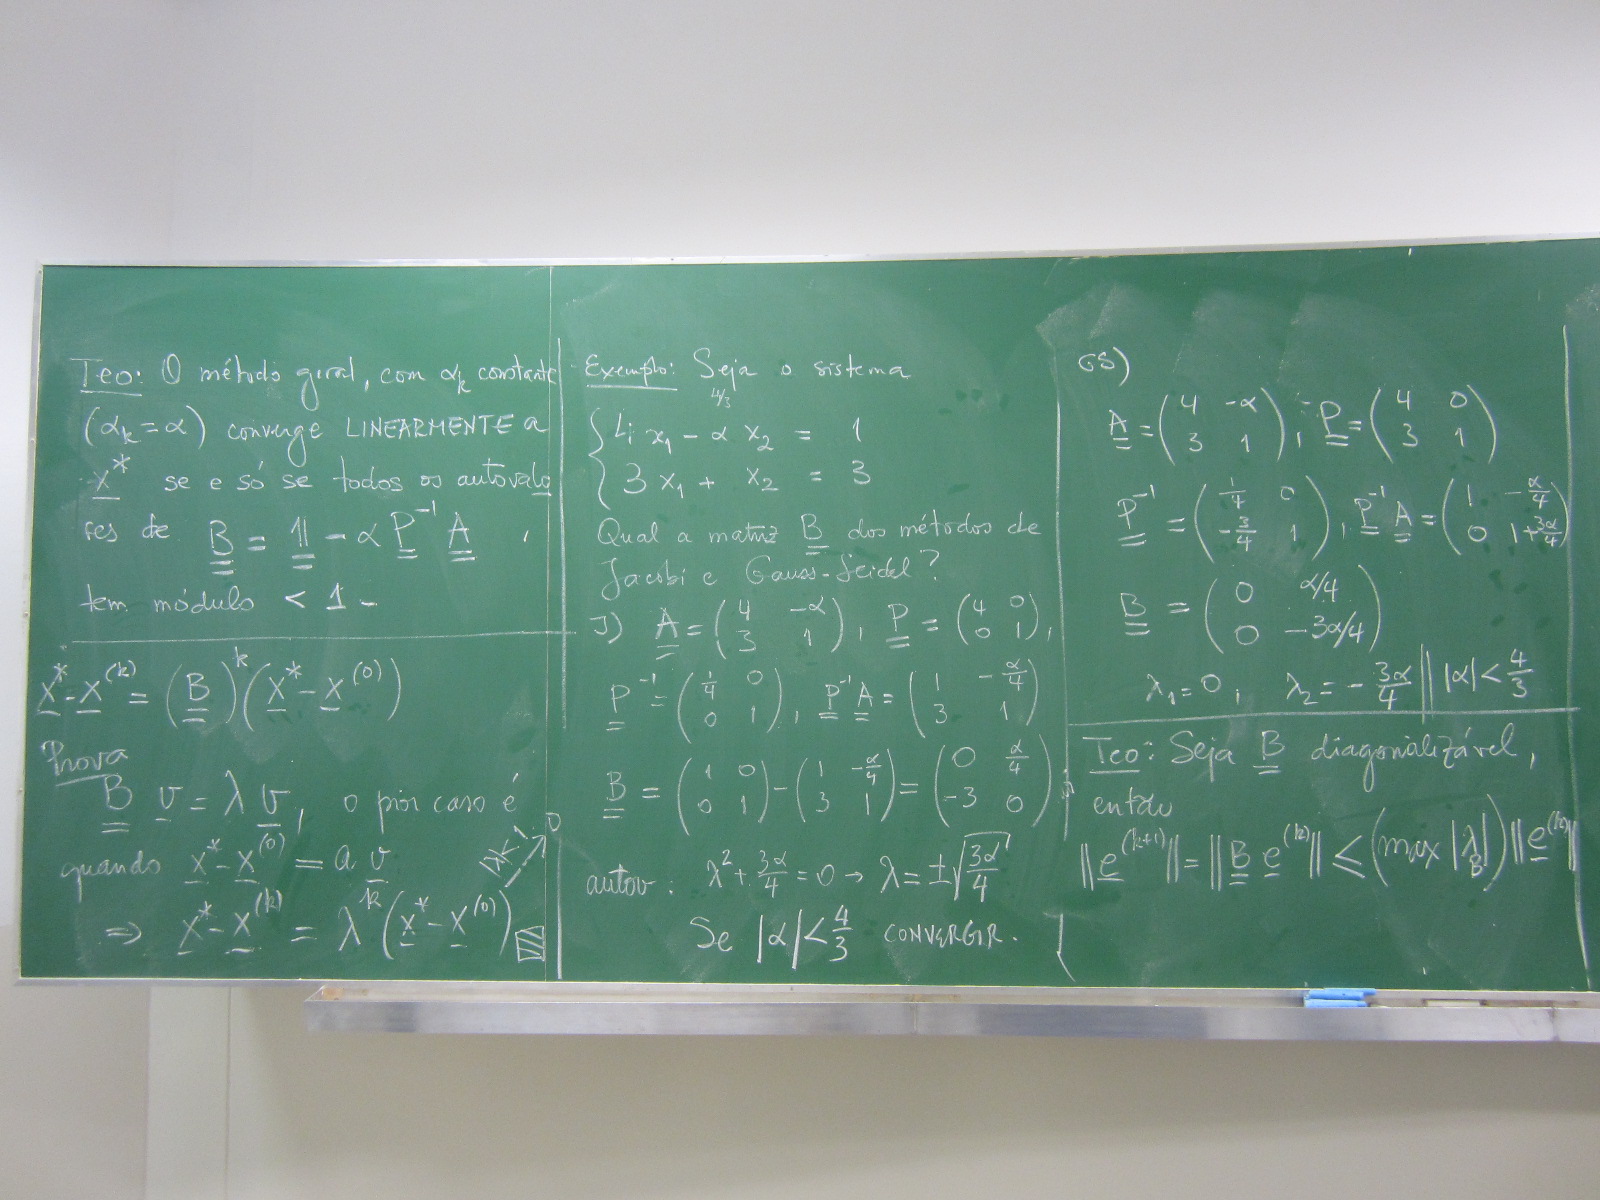 Teo: O método geral, com αₖ constante
(αₖ = α) converge LINEARMENTE a
x* se e só se todos os autovalo
res de B = 1 - α P⁻¹ A ,
tem módulo < 1 -
x* - x⁽ᵏ⁾ = (B)ᵏ (x* - x⁽⁰⁾)
Prova
B v = λ v, o pior caso é
quando x* - x⁽⁰⁾ = a v
⇒ x* - x⁽ᵏ⁾ = λᵏ (x* - x⁽⁰⁾)
|λ|<1
0
Exemplo: Seja o sistema
4/3
{ 4 x₁ - α x₂ = 1
3 x₁ + x₂ = 3
Qual a matriz B dos métodos de
Jacobi e Gauss-Seidel?
J) A = (4 -α; 3 1), P = (4 0; 0 1),
P⁻¹ = (1/4 0; 0 1), P⁻¹A = (1 -α/4; 3 1)
B = (1 0; 0 1) - (1 -α/4; 3 1) = (0 α/4; -3 0)
autov: λ² + 3α/4 = 0 → λ = ±√(3α/4)
Se |α| < 4/3 CONVERGIR.
GS)
A = (4 -α; 3 1), P = (4 0; 3 1)
P⁻¹ = (1/4 0; -3/4 1), P⁻¹A = (1 -α/4; 0 1+3α/4)
B = (0 α/4; 0 -3α/4)
λ₁ = 0, λ₂ = -3α/4 || |α| < 4/3
Teo: Seja B diagonalizável,
então
||e⁽ᵏ⁺¹⁾|| = ||B e⁽ᵏ⁾|| ≤ (max |λ_B|) ||e⁽ᵏ⁾||